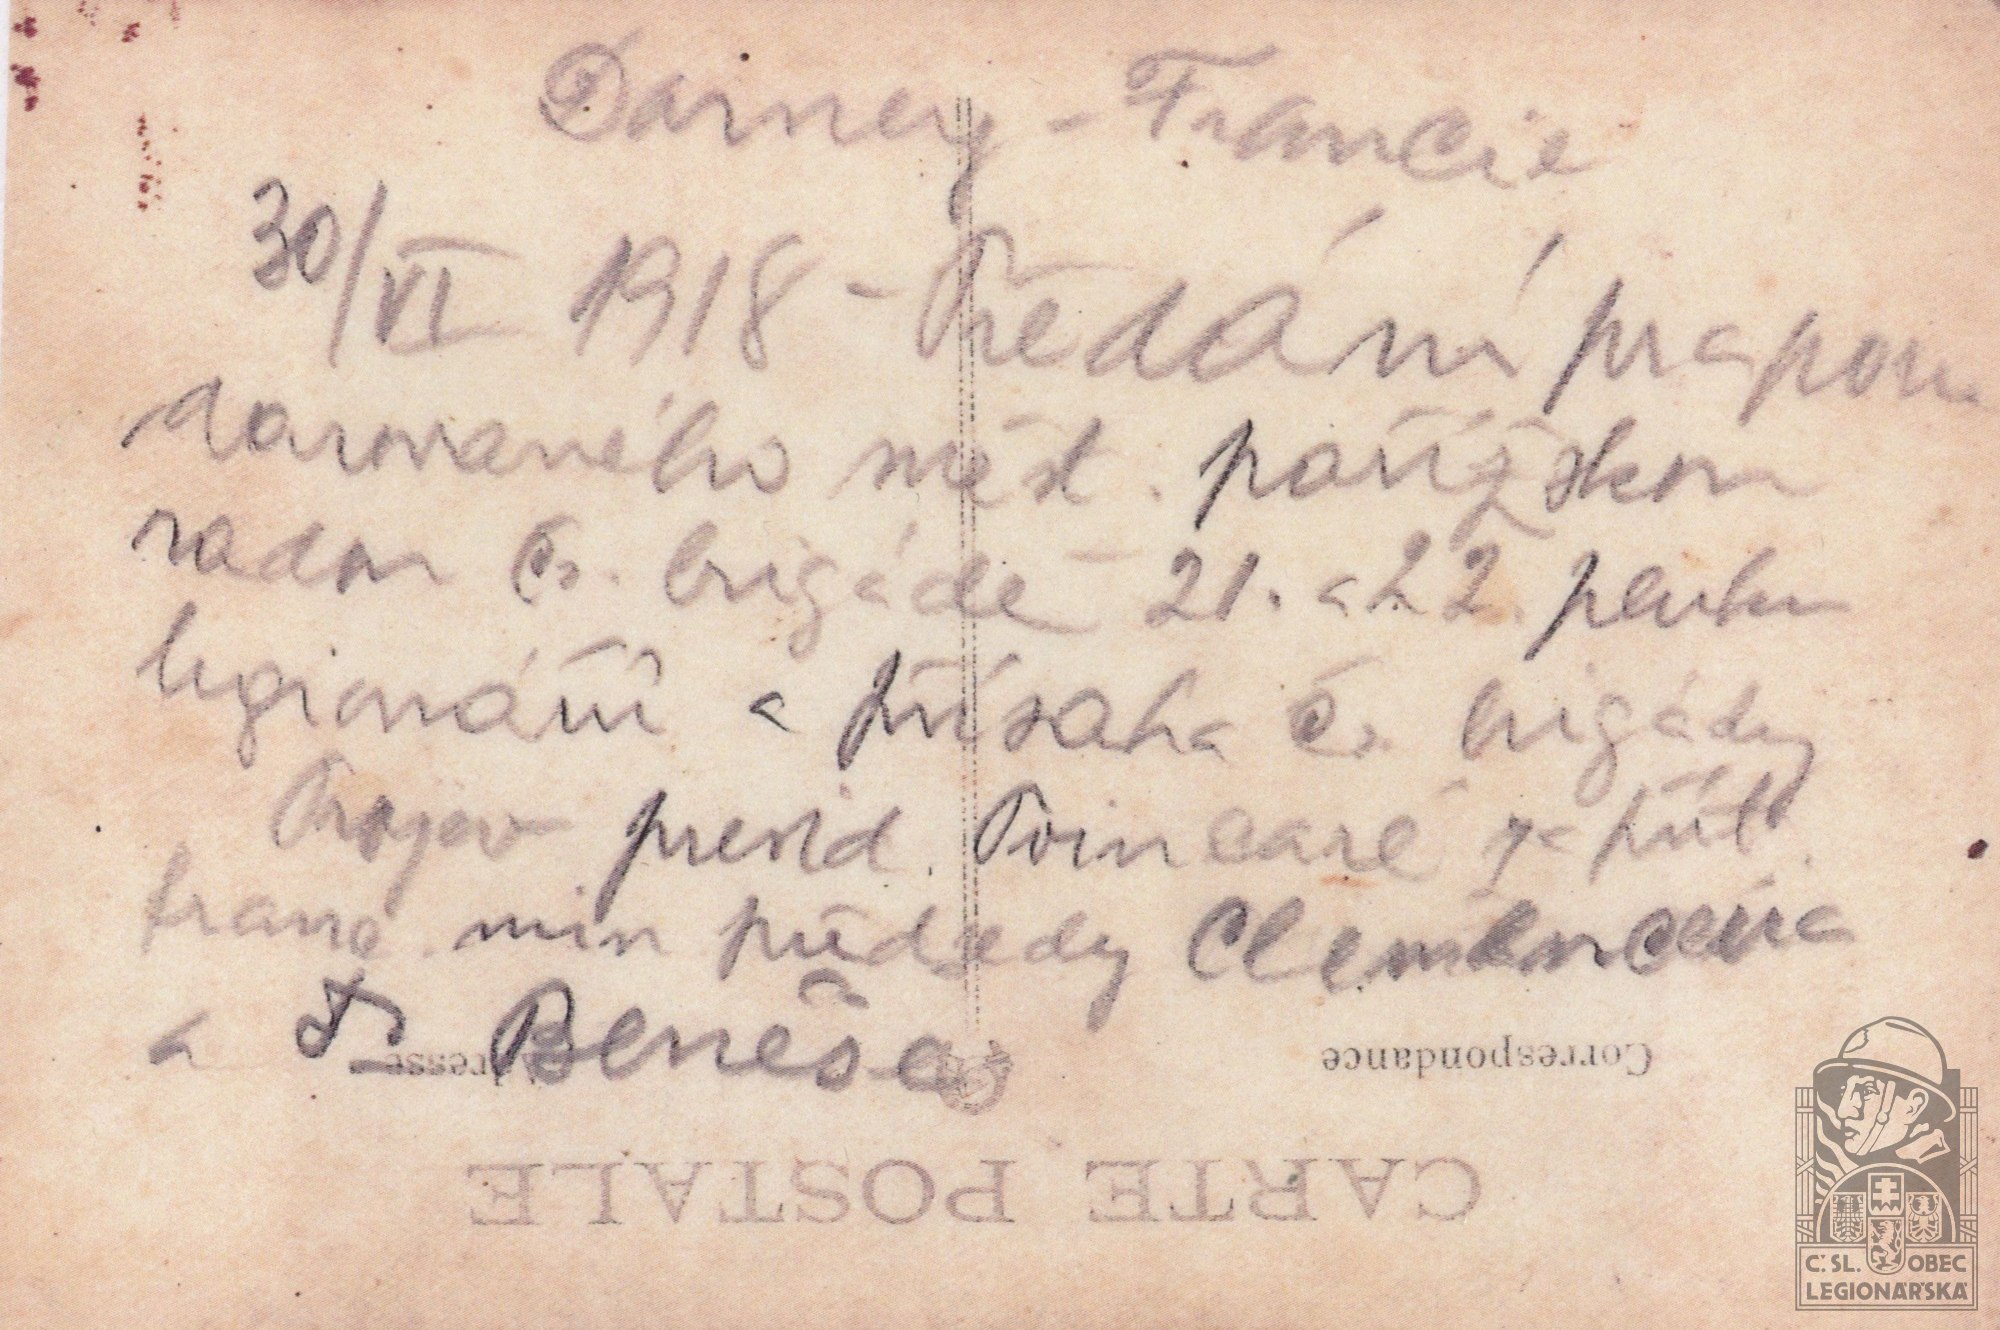 Darney - Francie
30/VI 1918 - Předání praporu
darovaného měst. pařížskou
radou čs. brigádě 21. a 22. pluku
legionářů a přísaha čs. brigády
Projev presid. Poincaré za přít.
franc. min předsedy Clemenceaua
a Dr Beneše
Adresse
Correspondance
CARTE POSTALE
Č.SL. OBEC
LEGIONÁŘSKÁ